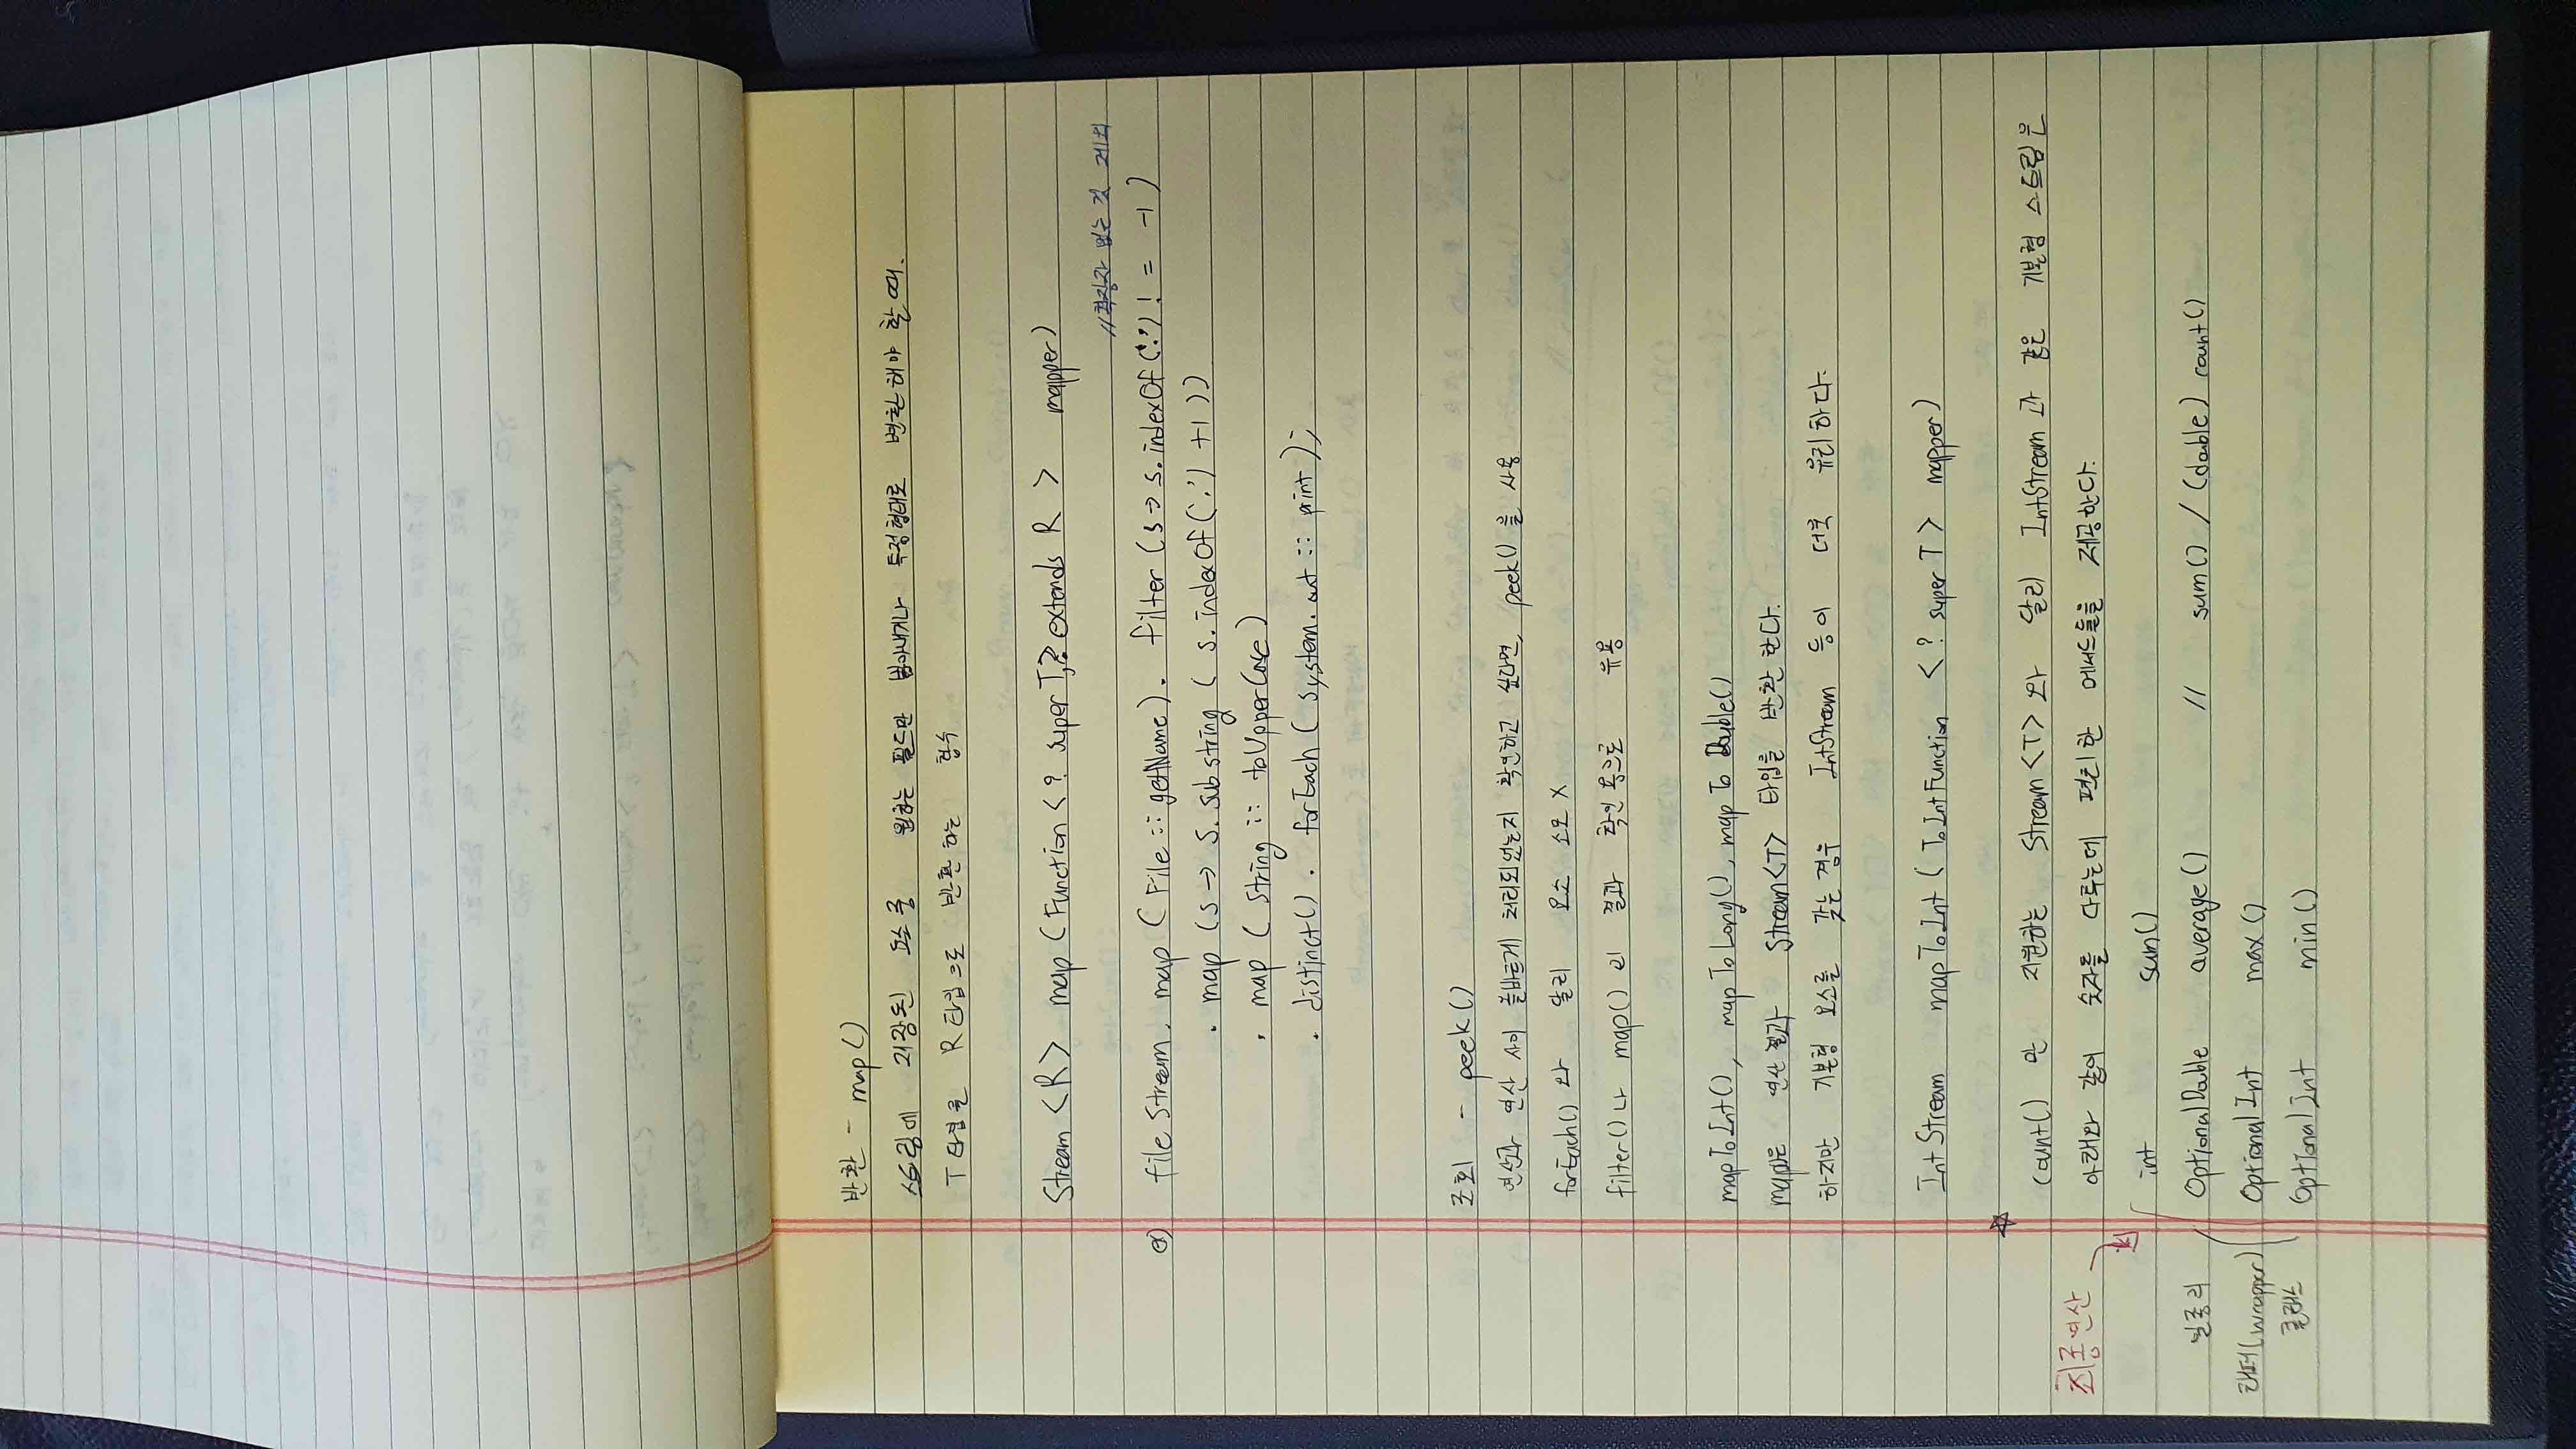 반환 - map()
스트림에 저장된 요소 중 원하는 필드만 뽑아내거나 특정형태로 변환해야 할 때.
T타입을 R타입으로 반환하는 함수
Stream <R> map (Function <? super T,? extends R > mapper)
//확장자 없는 것 제외
ex) fileStream. map (File :: getName). filter (s → s.indexOf('.') ! = -1 )
. map (s → s.substring ( s.indexOf('.') +1 ))
. map ( String :: toUpperCase )
. distinct(). forEach ( system.out :: print );
조회 - peek()
연산과 연산 사이 올바르게 처리되었는지 확인하고 싶다면, peek()을 사용
forEach()와 달리 요소 소모 X
filter()나 map()의 결과 확인용으로 유용
mapToInt(), mapToLong(), mapToDouble()
map()은 연산 결과 Stream<T> 타입을 반환한다.
하지만 기본형 요소를 갖는 경우 IntStream 등이 더욱 유리하다.
IntStream mapToInt ( ToIntFunction <? super T> mapper)
☆
count() 만 지원하는 Stream<T>와 달리 IntStream과 같은 기본형 스트림은
최종연산
아래와 같이 숫자를 다루는데 편리한 메서드들을 제공한다.
int sum()
일종의
OptionalDouble average() // sum() / (double) count()
래퍼(wrapper)
OptionalInt max()
클래스
OptionalInt min()